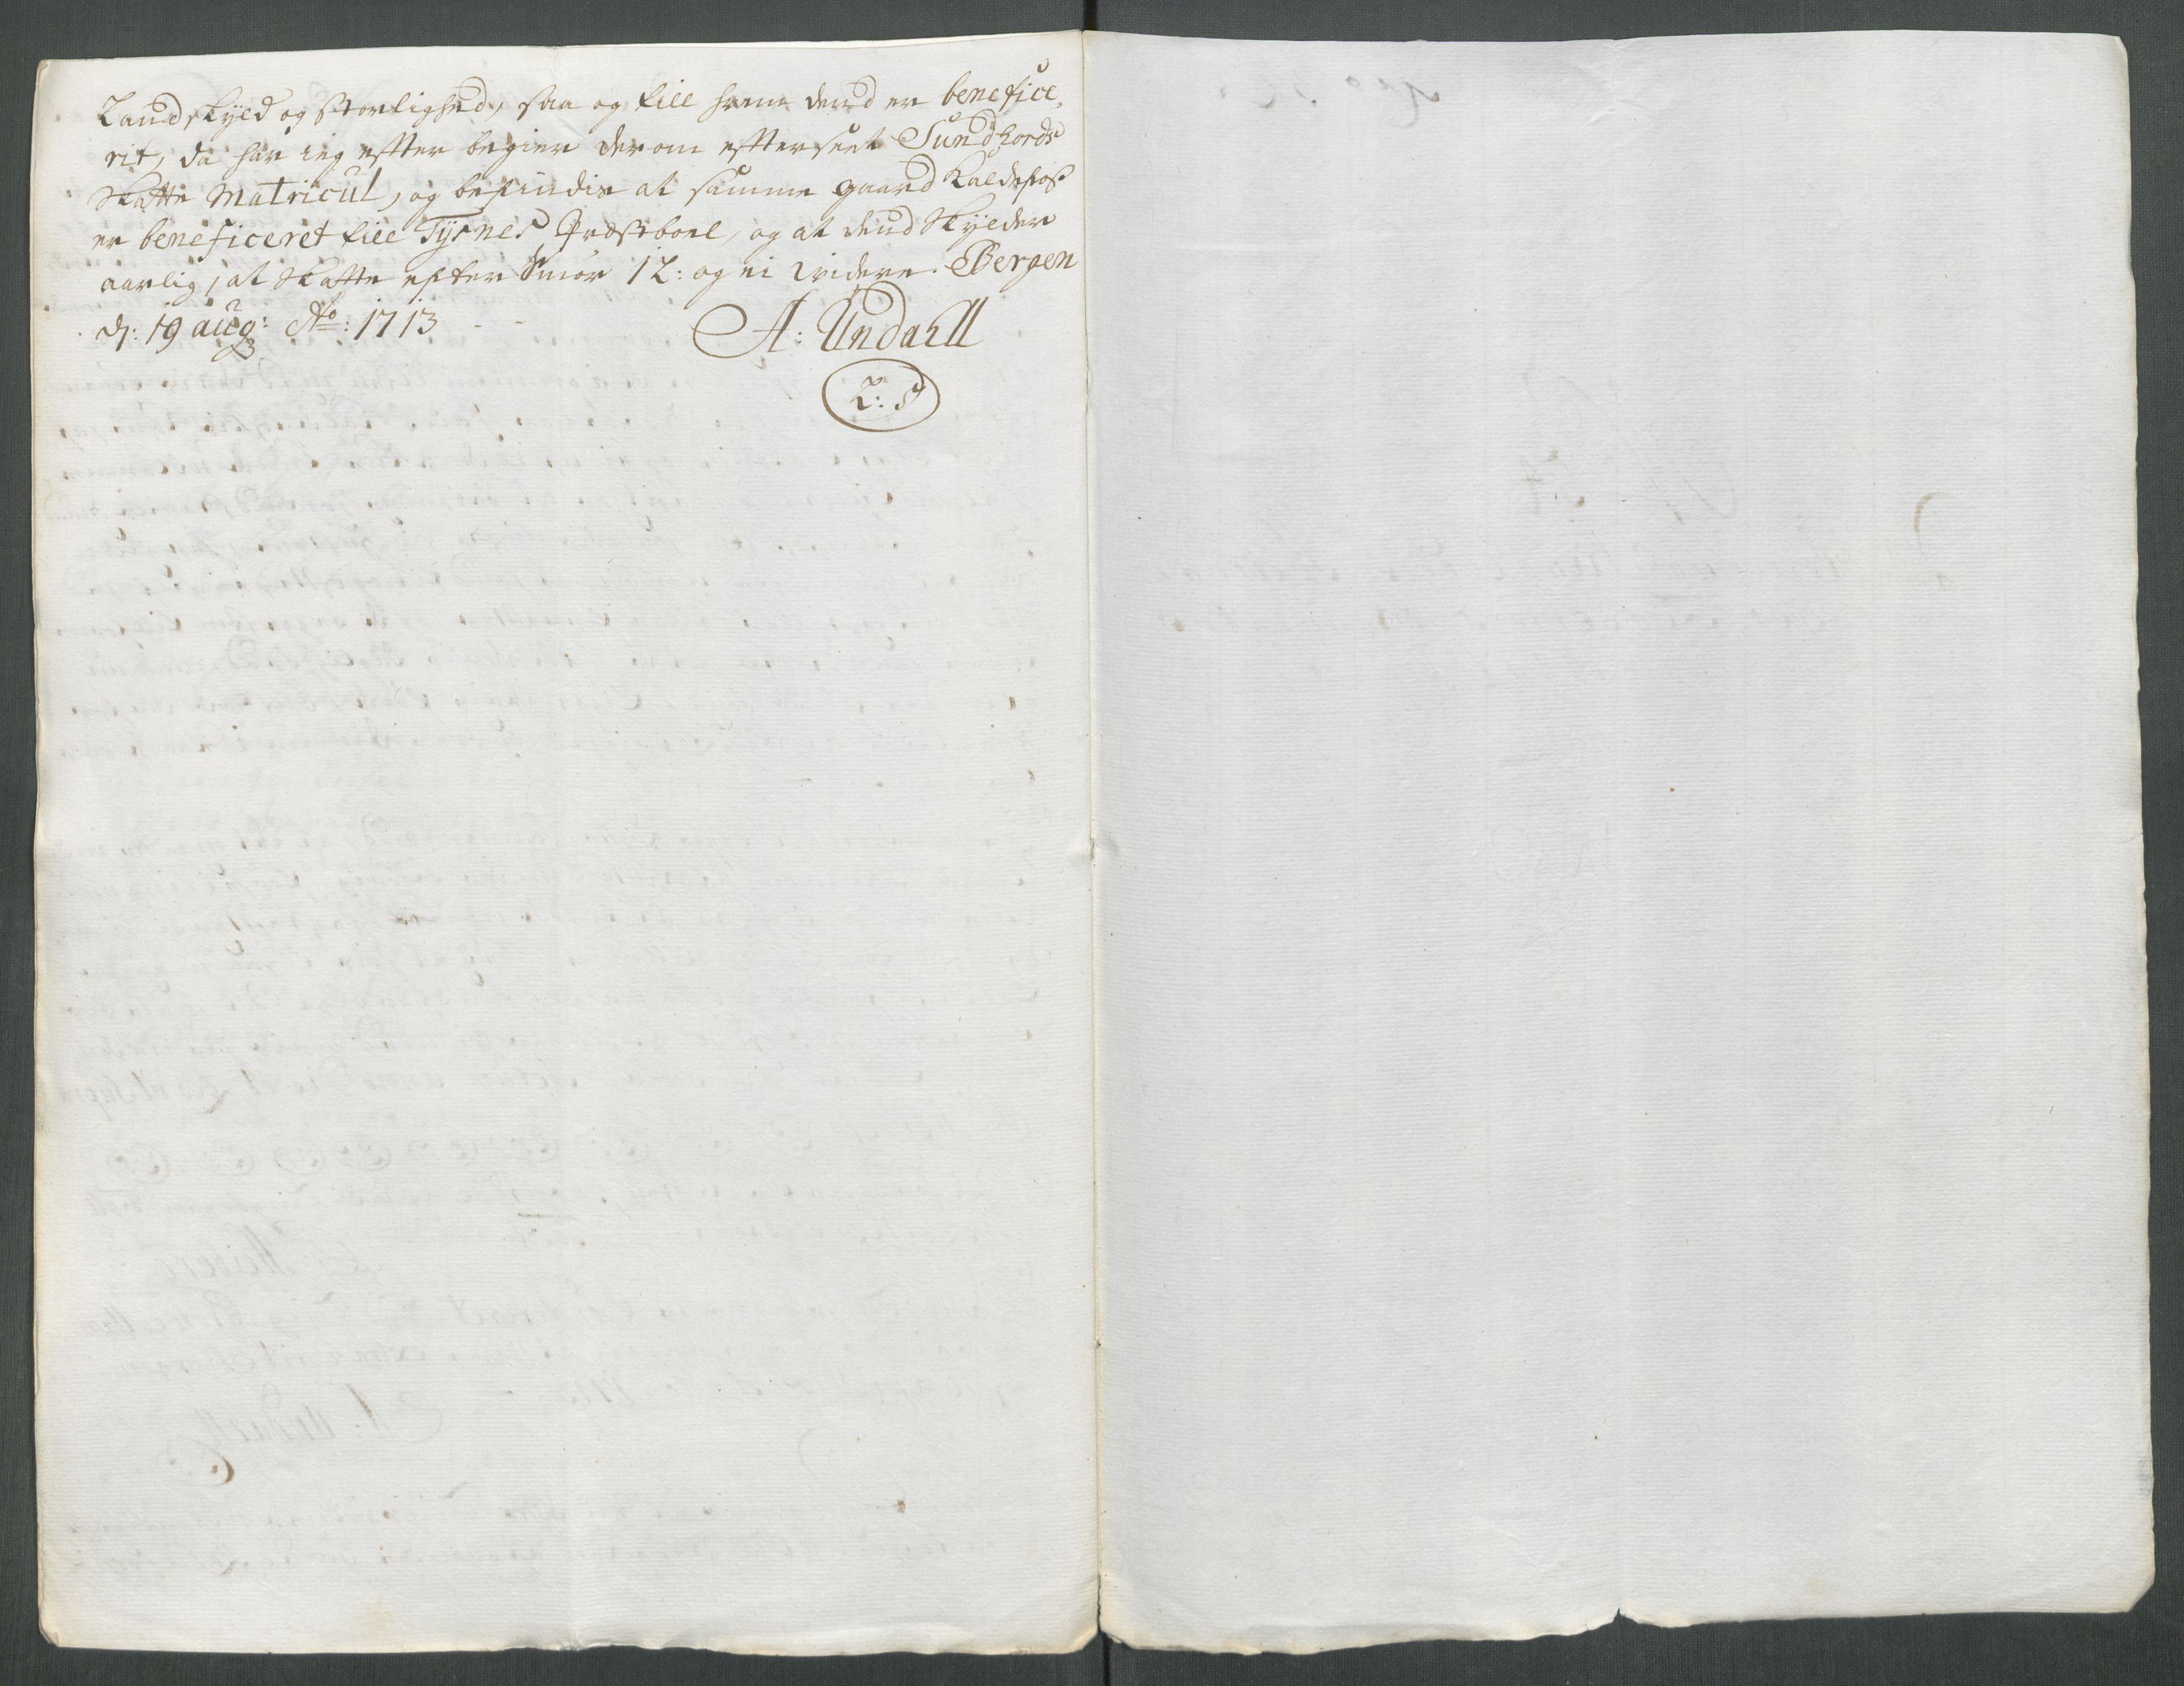 Landskyld og Storlighed, saa og till hvem dend er benefice,
rit, da har ieg efter begier derom efterseet Sundhords
Skatte Matricul, og befindis at samme gaard Kaldefos
er beneficeret till Tysnes Præsteboel, og at dend Skylder
aarlig, at Skatte efter Smør 1 L: og ei videre. Bergen
d: 19 aug: Ao: 1713 - -
A: Undahll
L: S